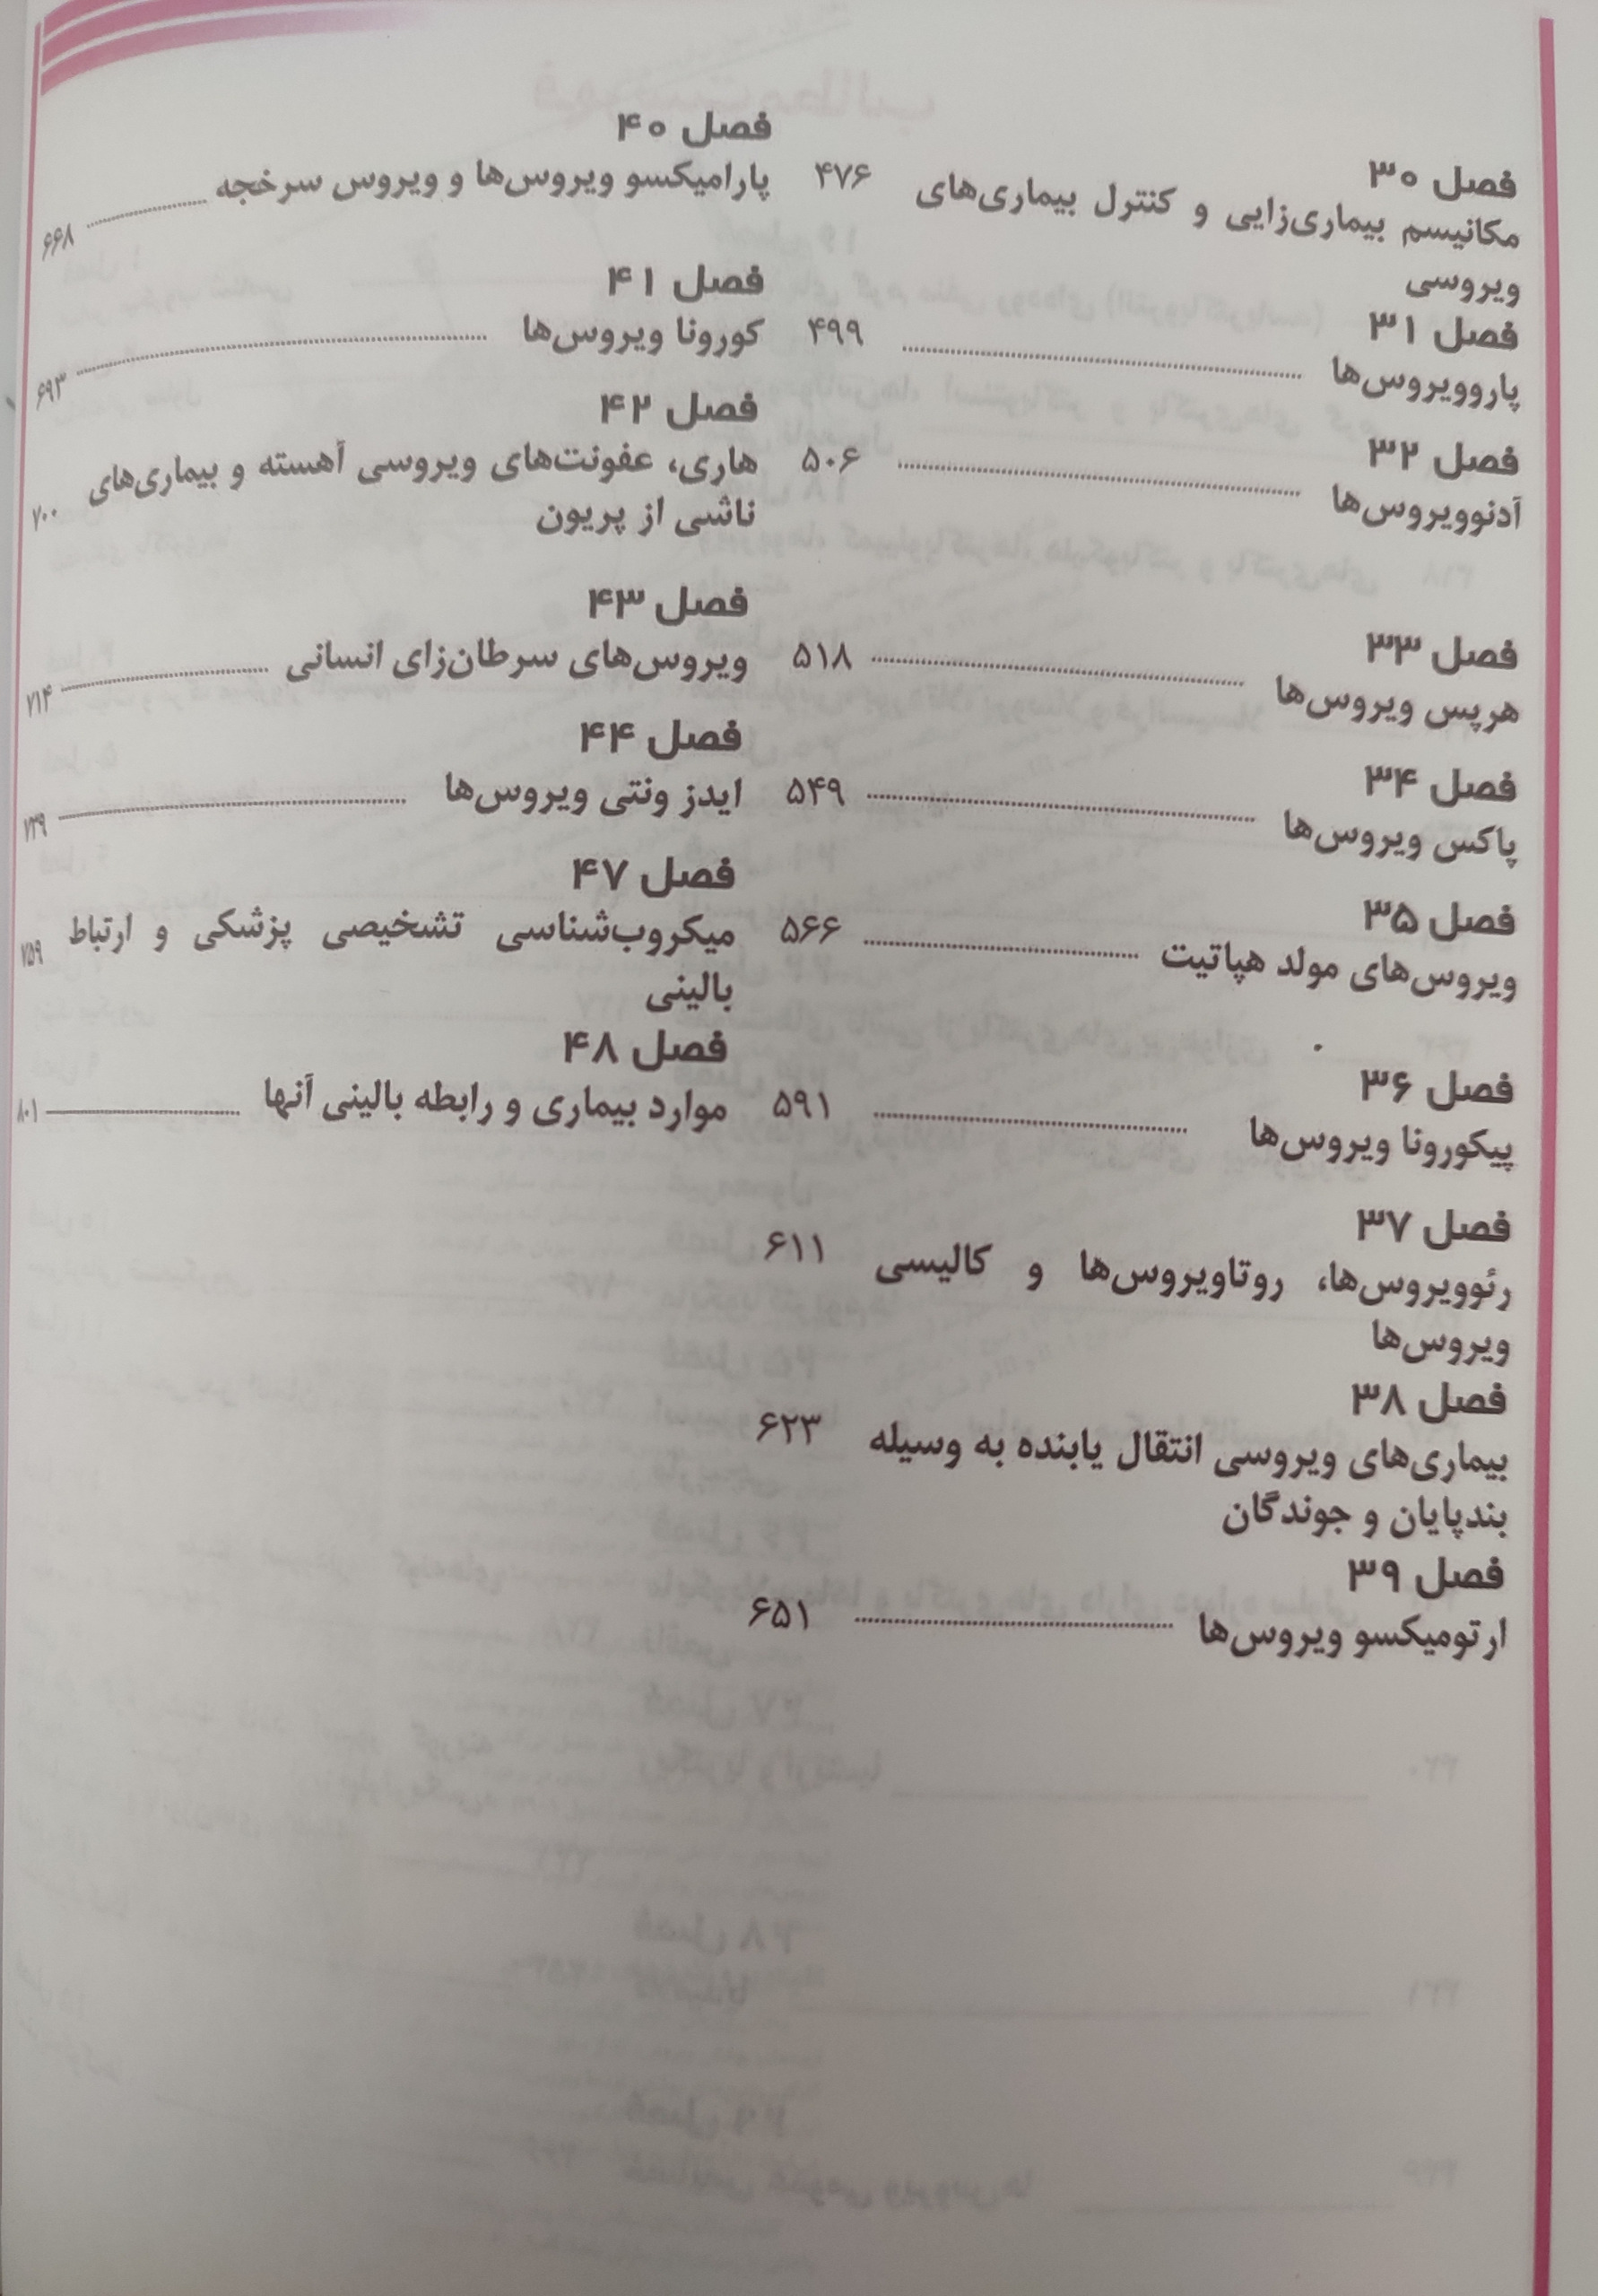 فصل ۳۰
مکانیسم بیماری‌زایی و کنترل بیماری‌های ۴۷۶
ویروسی
فصل ۳۱
پاروویروس‌ها ۴۹۹
فصل ۳۲
آدنوویروس‌ها ۵۰۶
فصل ۳۳
هرپس ویروس‌ها ۵۱۸
فصل ۳۴
پاکس ویروس‌ها ۵۴۹
فصل ۳۵
ویروس‌های مولد هپاتیت ۵۶۶
فصل ۳۶
پیکورونا ویروس‌ها ۵۹۱
فصل ۳۷
رئوویروس‌ها، روتاویروس‌ها و کالیسی ۶۱۱
ویروس‌ها
فصل ۳۸
بیماری‌های ویروسی انتقال یابنده به وسیله ۶۲۳
بندپایان و جوندگان
فصل ۳۹
ارتومیکسو ویروس‌ها ۶۵۱
فصل ۴۰
پارامیکسو ویروس‌ها و ویروس سرخجه ۶۶۸
فصل ۴۱
کورونا ویروس‌ها ۶۹۳
فصل ۴۲
هاری، عفونت‌های ویروسی آهسته و بیماری‌های ۷۰۰
ناشی از پریون
فصل ۴۳
ویروس‌های سرطان‌زای انسانی ۷۱۴
فصل ۴۴
ایدز ونتی ویروس‌ها ۷۳۹
فصل ۴۷
میکروب‌شناسی تشخیصی پزشکی و ارتباط ۷۵۹
بالینی
فصل ۴۸
موارد بیماری و رابطه بالینی آنها ۸۰۱